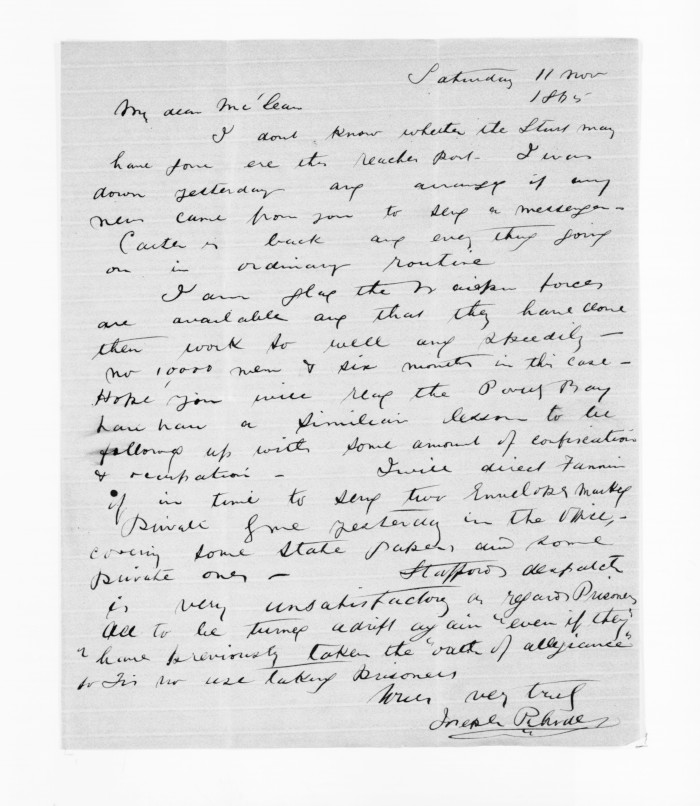 Saturday 11 Nov
1865
My dear McLean
I dont know whether the Sturt may
have gone ere this reaches port - I was
down yesterday and arranged if any
news came from you to send a messenger -
Carter is back and every thing going
on in ordinary routine
I am glad the Waiapu forces
are available and that they have done
their work so well and speedily -
no 10000 men & six months in this case -
Hope you will read the Poverty Bay
hau hau a similiar lesson to be
followed up with some amount of confiscation
& occupation - I will direct Fannin
if in time to send two Envelopes marked
Private & me yesterday in the Office, -
covering some State papers and some
private ones - Staffords despatch
is very unsatisfactory as regards Prisoners
All to be turned adrift again "even if they
" have previously taken the "oath of allegiance"
so Tis no use taking prisoners
Yours very truly
Joseph Rhodes